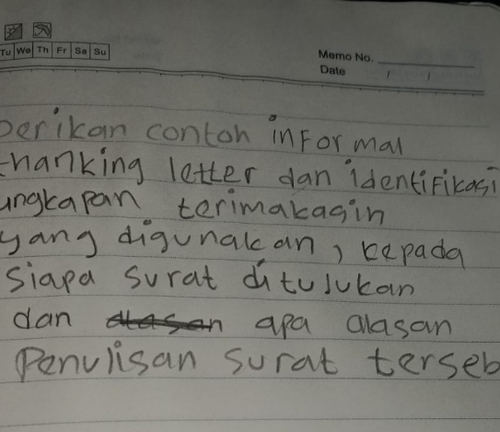 Tu We Th Fr Sa Su
Memo No.
Date / /
berikan contoh informal
thanking letter dan identifikasi
ungkapan terimakasin
yang digunakan, kepada
siapa surat ditujukan
dan alasan apa alasan
Penulisan surat terseb